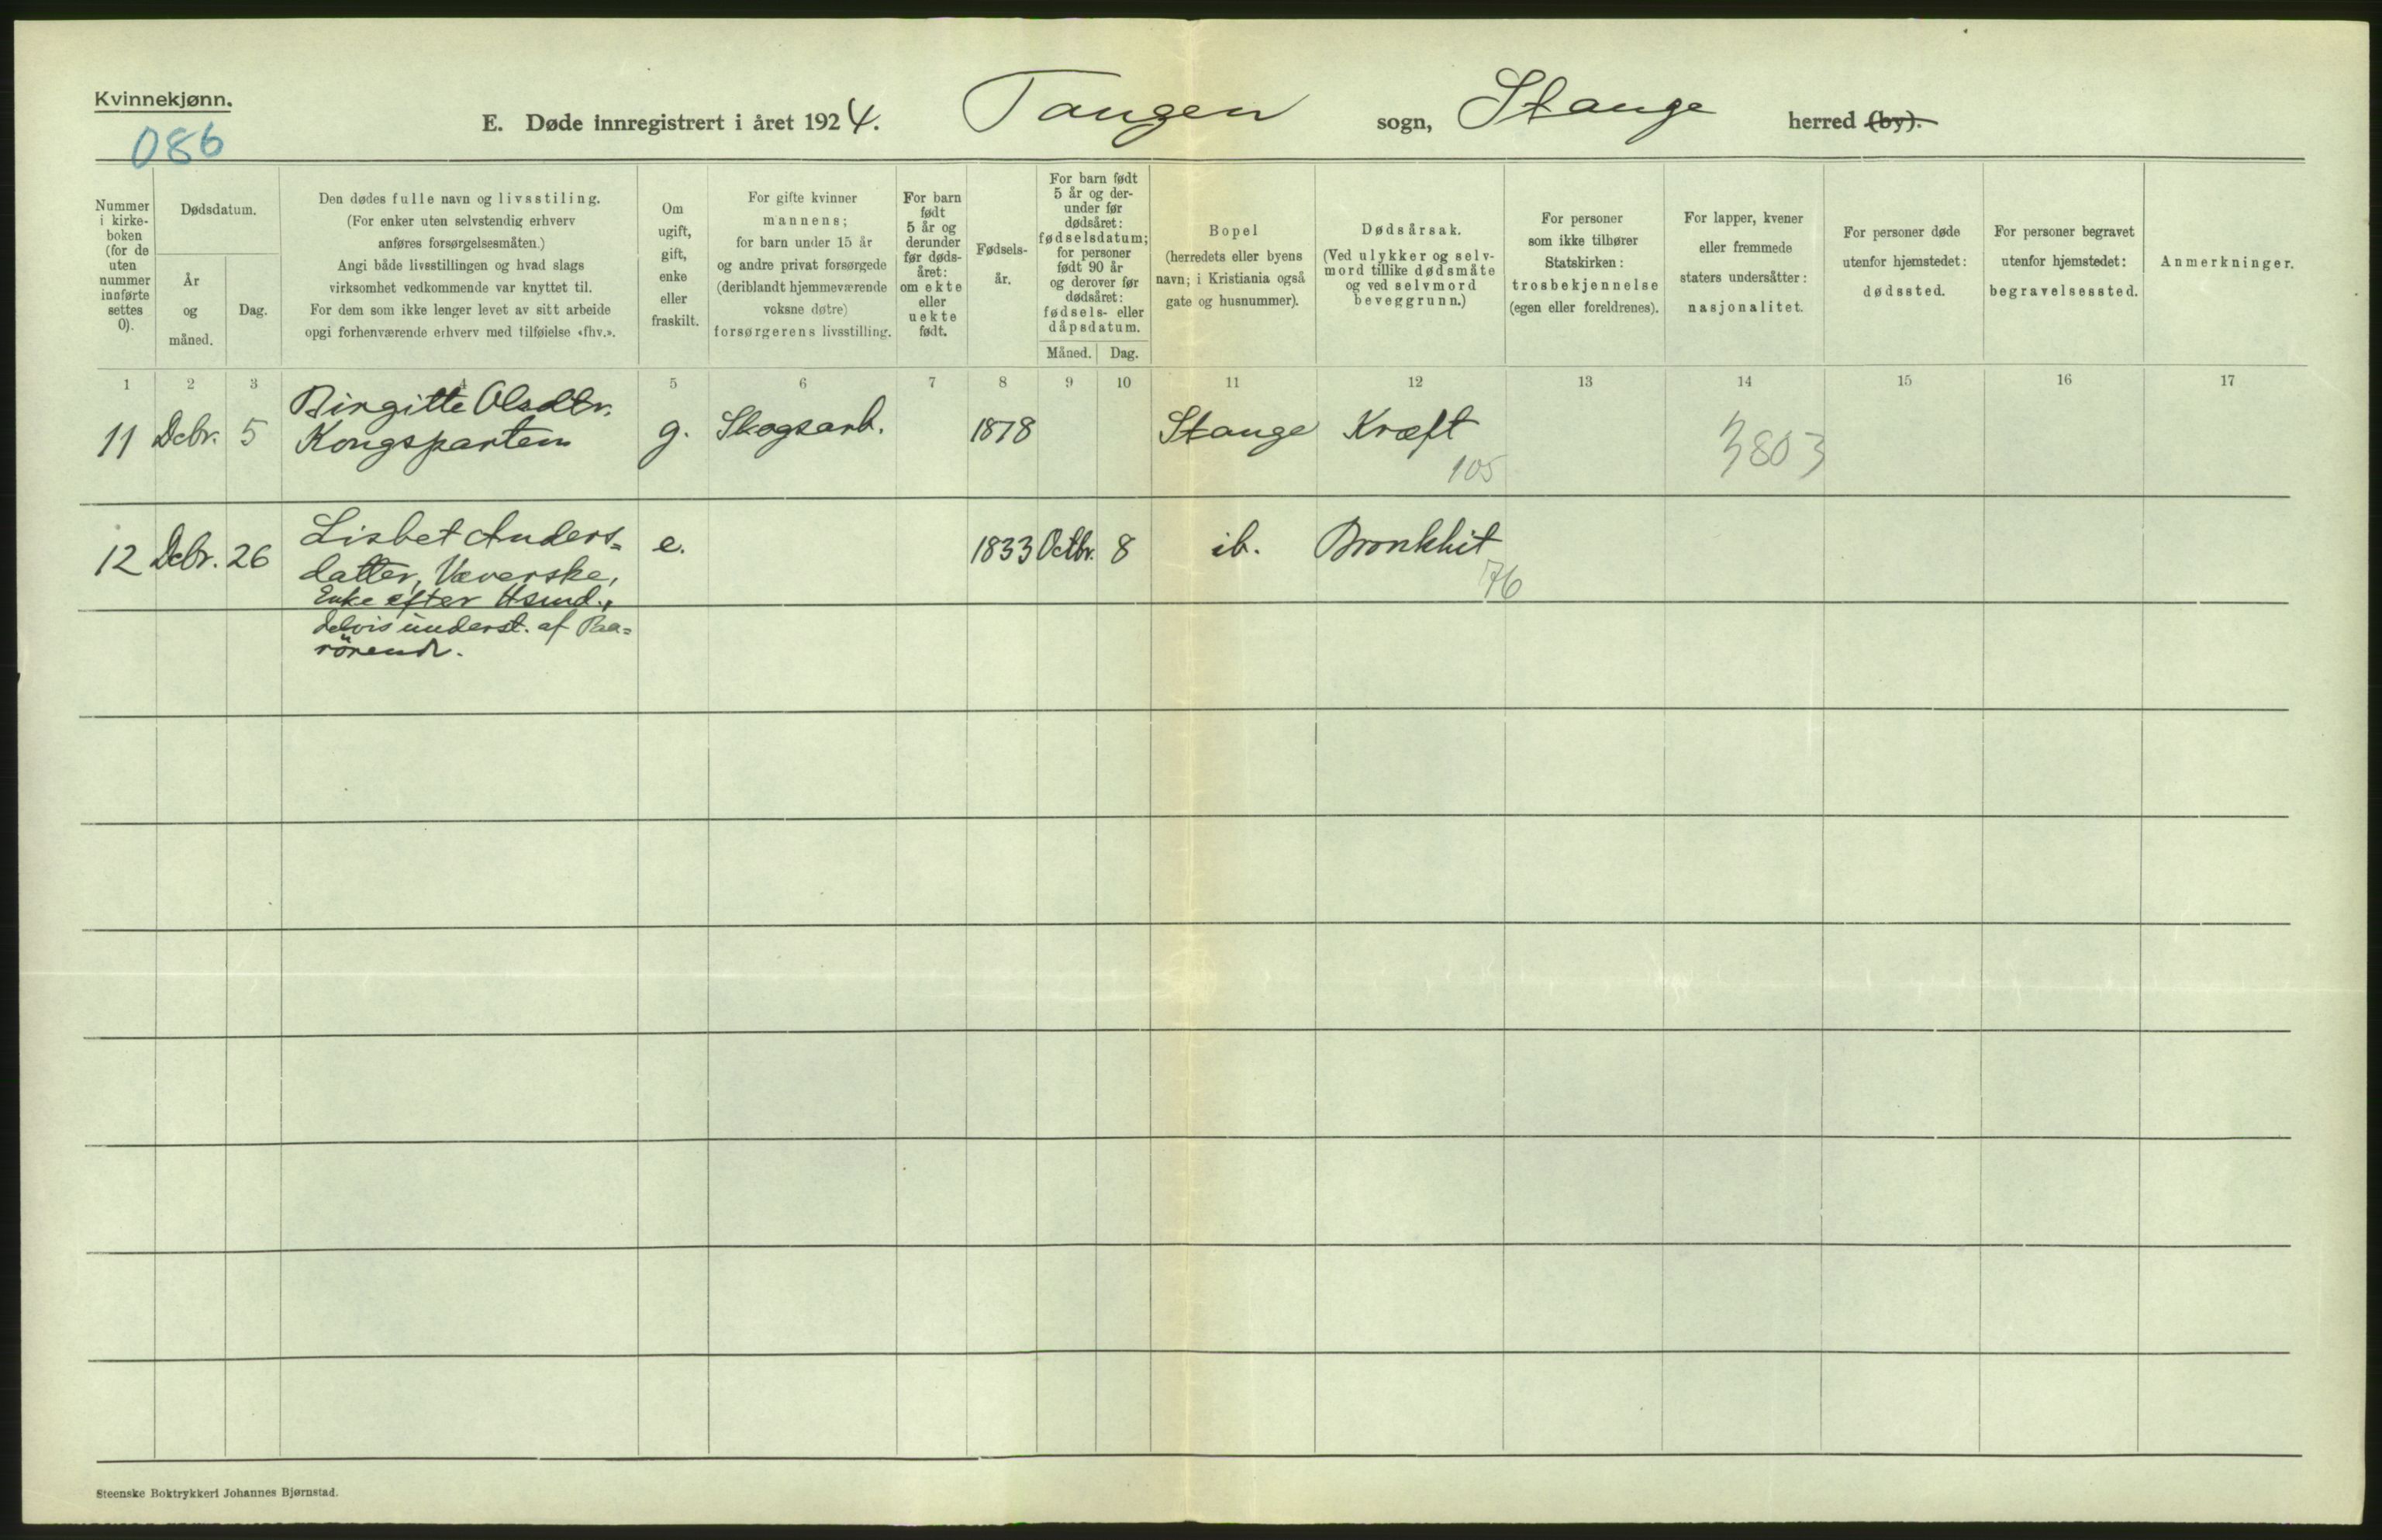 Kvinnekjønn.
086
E. Døde innregistrert i året 1924. Tangen sogn, Stange herred (by).
Nummer
i kirke-
boken
(for de
uten
nummer
innførte
settes
0).
Dødsdatum.
År
og
måned.
Dag.
Den dødes fulle navn og livsstiling.
(For enker uten selvstendig erhverv
anføres forsørgelsesmåten.)
Angi både livsstillingen og hvad slags
virksomhet vedkommende var knyttet til.
For dem som ikke lenger levet av sitt arbeide
opgi forhenværende erhverv med tilføielse «fhv.».
Om
ugift,
gift,
enke
eller
fraskilt.
For gifte kvinner
mannens;
for barn under 15 år
og andre privat forsørgede
(deriblandt hjemmeværende
voksne døtre)
forsørgerens livsstilling.
For barn
født
5 år og
derunder
før døds-
året:
om ekte
eller
uekte
født.
Fødsels-
år.
For barn født
5 år og der-
under før
dødsåret:
fødselsdatum;
for personer
født 90 år
og derover før
dødsåret:
fødsels- eller
dåpsdatum.
Måned. Dag.
Bopel
(herredets eller byens
navn; i Kristiania også
gate og husnummer).
Dødsårsak.
(Ved ulykker og selv-
mord tillike dødsmåte
og ved selvmord
beveggrunn.)
For personer
som ikke tilhører
Statskirken:
trosbekjennelse
(egen eller foreldrenes).
For lapper, kvener
eller fremmede
staters undersåtter:
nasjonalitet.
For personer døde
utenfor hjemstedet:
dødssted.
For personer begravet
utenfor hjemstedet:
begravelsessted.
Anmerkninger.
1 2 3 4 5 6 7 8 9 10 11 12 13 14 15 16 17
11 Debr. 5 Birgitte Olsdtr.
Kongsparten g. Skogsarb. 1878 Stange Kræft
105 3803
12 Debr. 26 Lisbet Anders=
datter, Væverske, e. 1833 Octbr. 8 ib. Bronkhit
76
Enke efter Hsmd.,
delvis underst. af Paa=
rörende.
Steenske Boktrykkeri Johannes Bjørnstad.